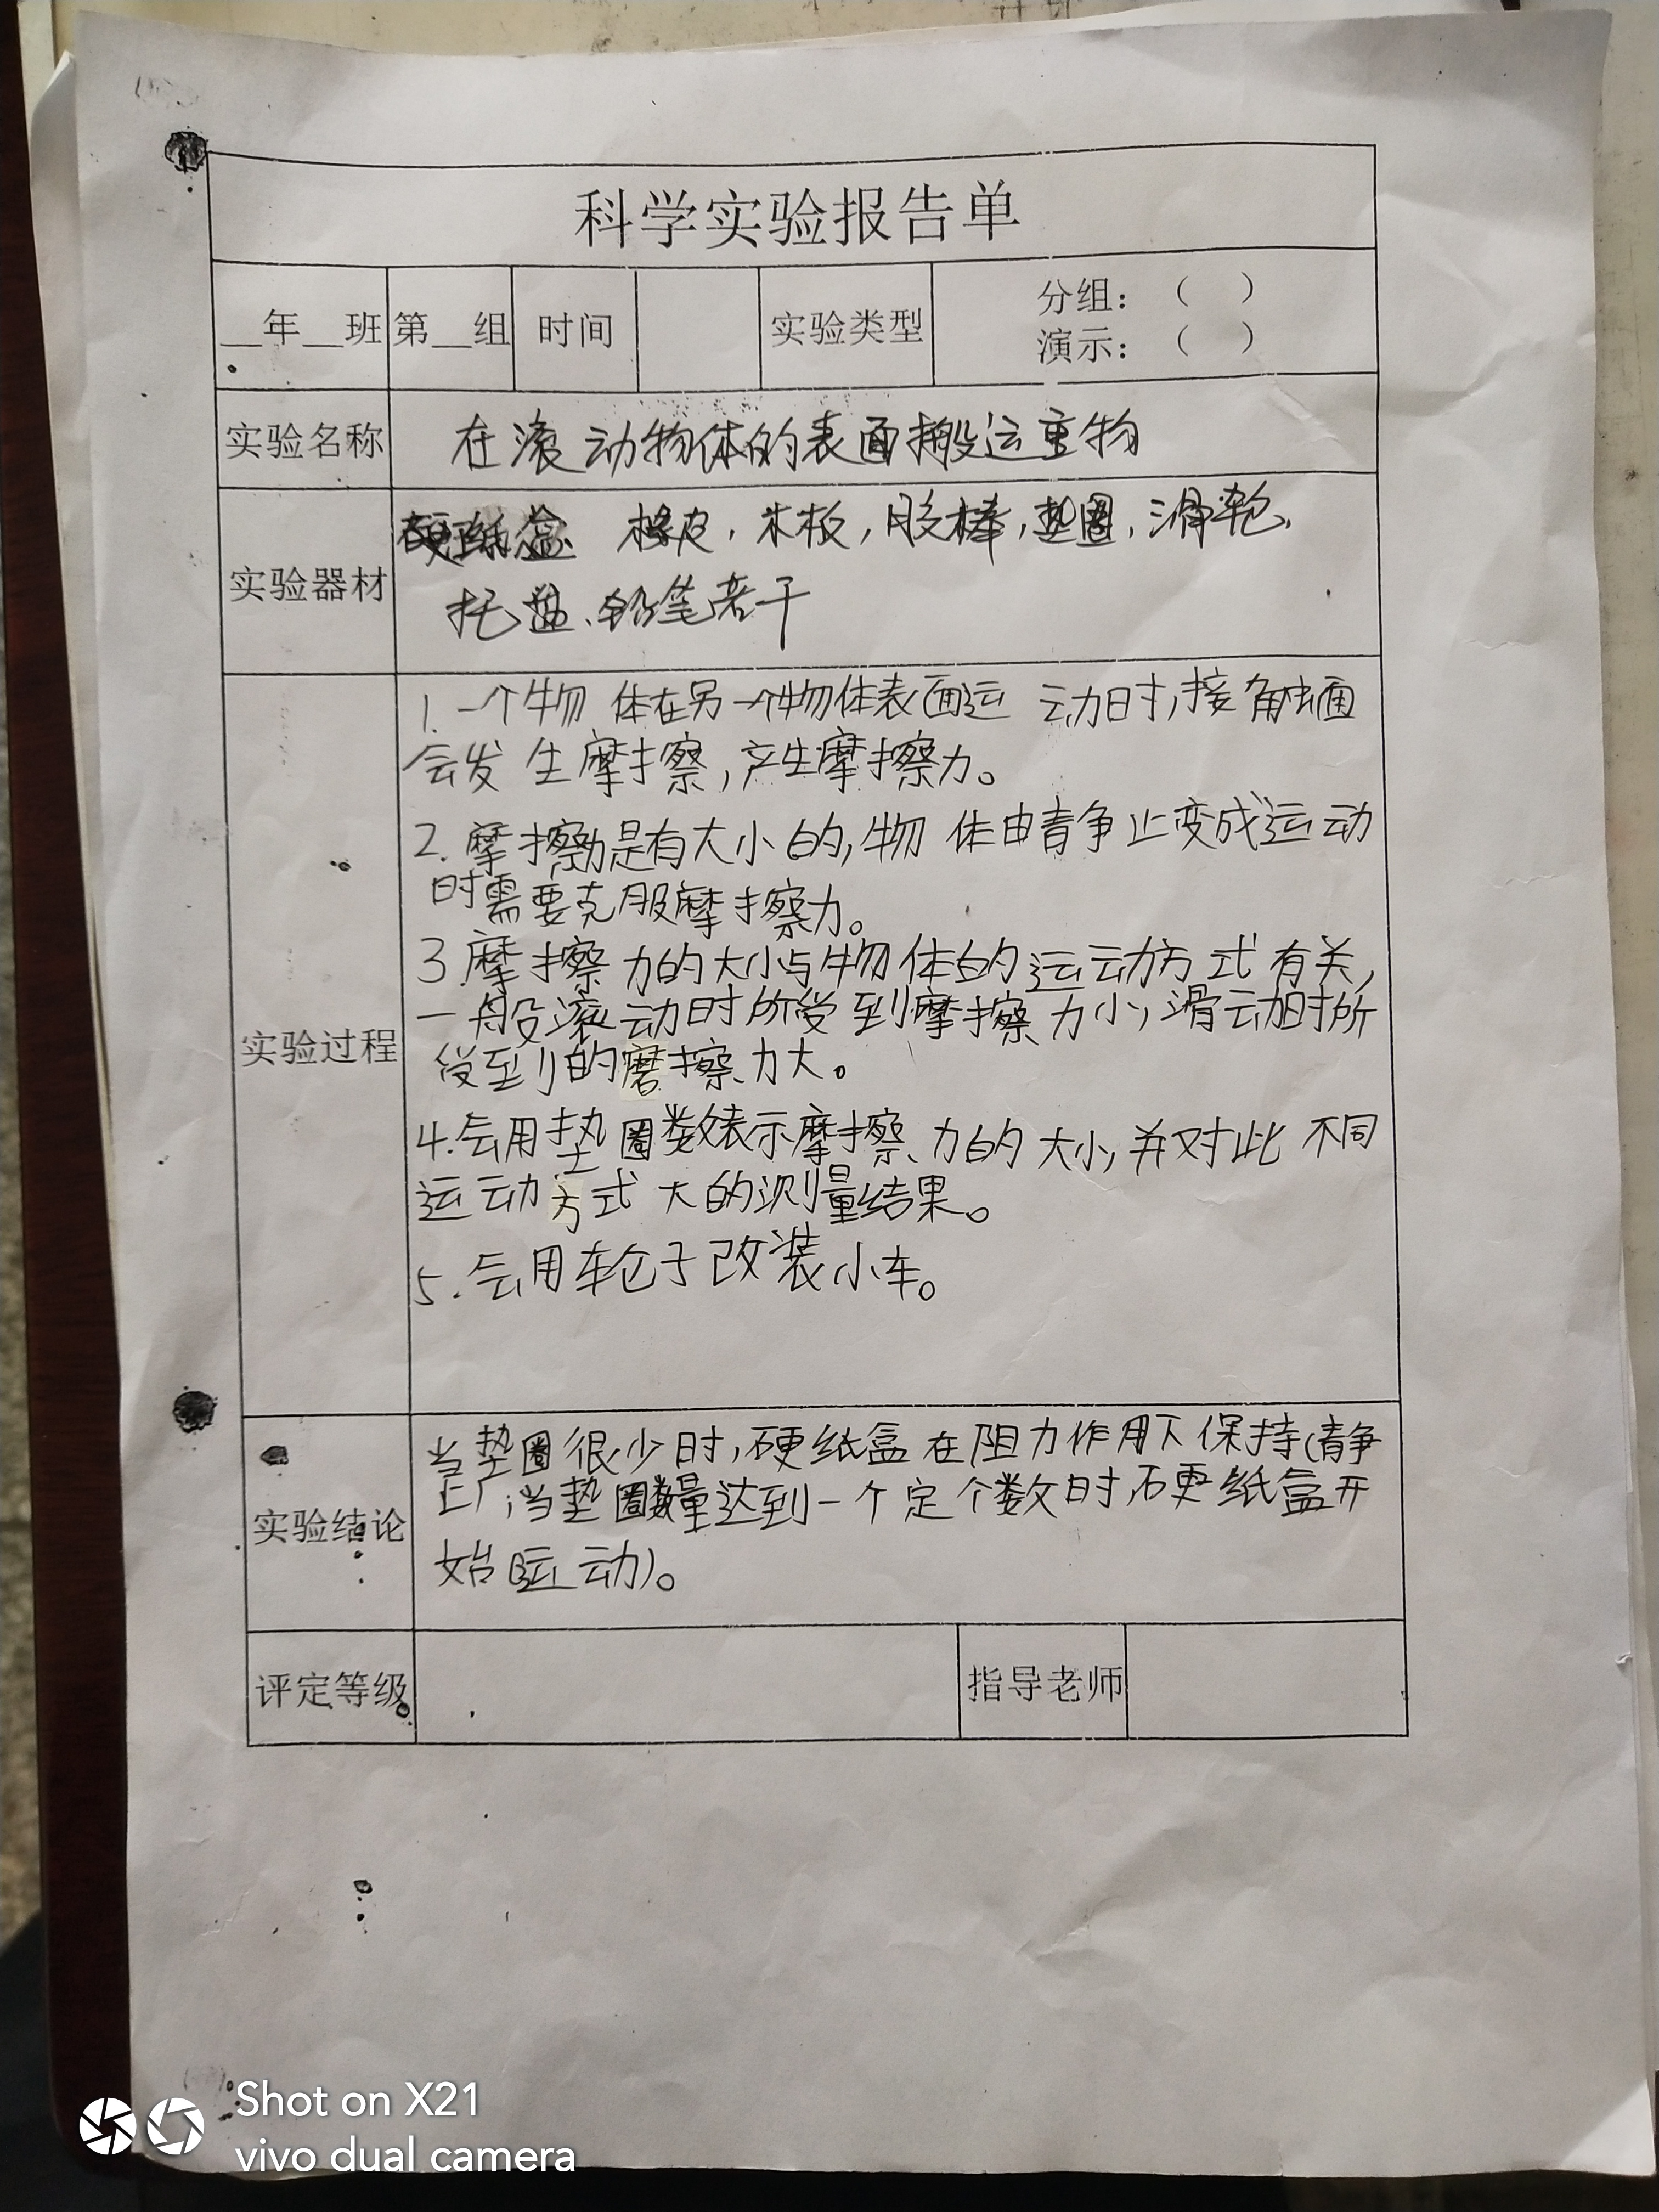 科学实验报告单
__年__班 第__组 时间 实验类型 分组：（ ）
演示：（ ）
实验名称 在滚动物体的表面搬运重物
硬纸盒 橡皮，木板，胶棒，垫圈，滑轮，
实验器材
托盘、铅笔若干
1.一个物体在另一个物体表面运动时，接触面
会发生摩擦，产生摩擦力。
2.摩擦力是有大小的，物体由静止变成运动
时需要克服摩擦力。
3.摩擦力的大小与物体的运动方式有关，
一般滚动时所受到摩擦力小，滑动时所
实验过程
受到的磨擦力大。
4.会用垫圈数表示摩擦力的大小，并对此不同
运动方式大的测量结果。
5.会用轮子改装小车。
当垫圈很少时，硬纸盒在阻力作用下保持（静
止），当垫圈数量达到一个定个数时，硬纸盒开
实验结论
始（运动）。
评定等级 指导老师
Shot on X21
vivo dual camera